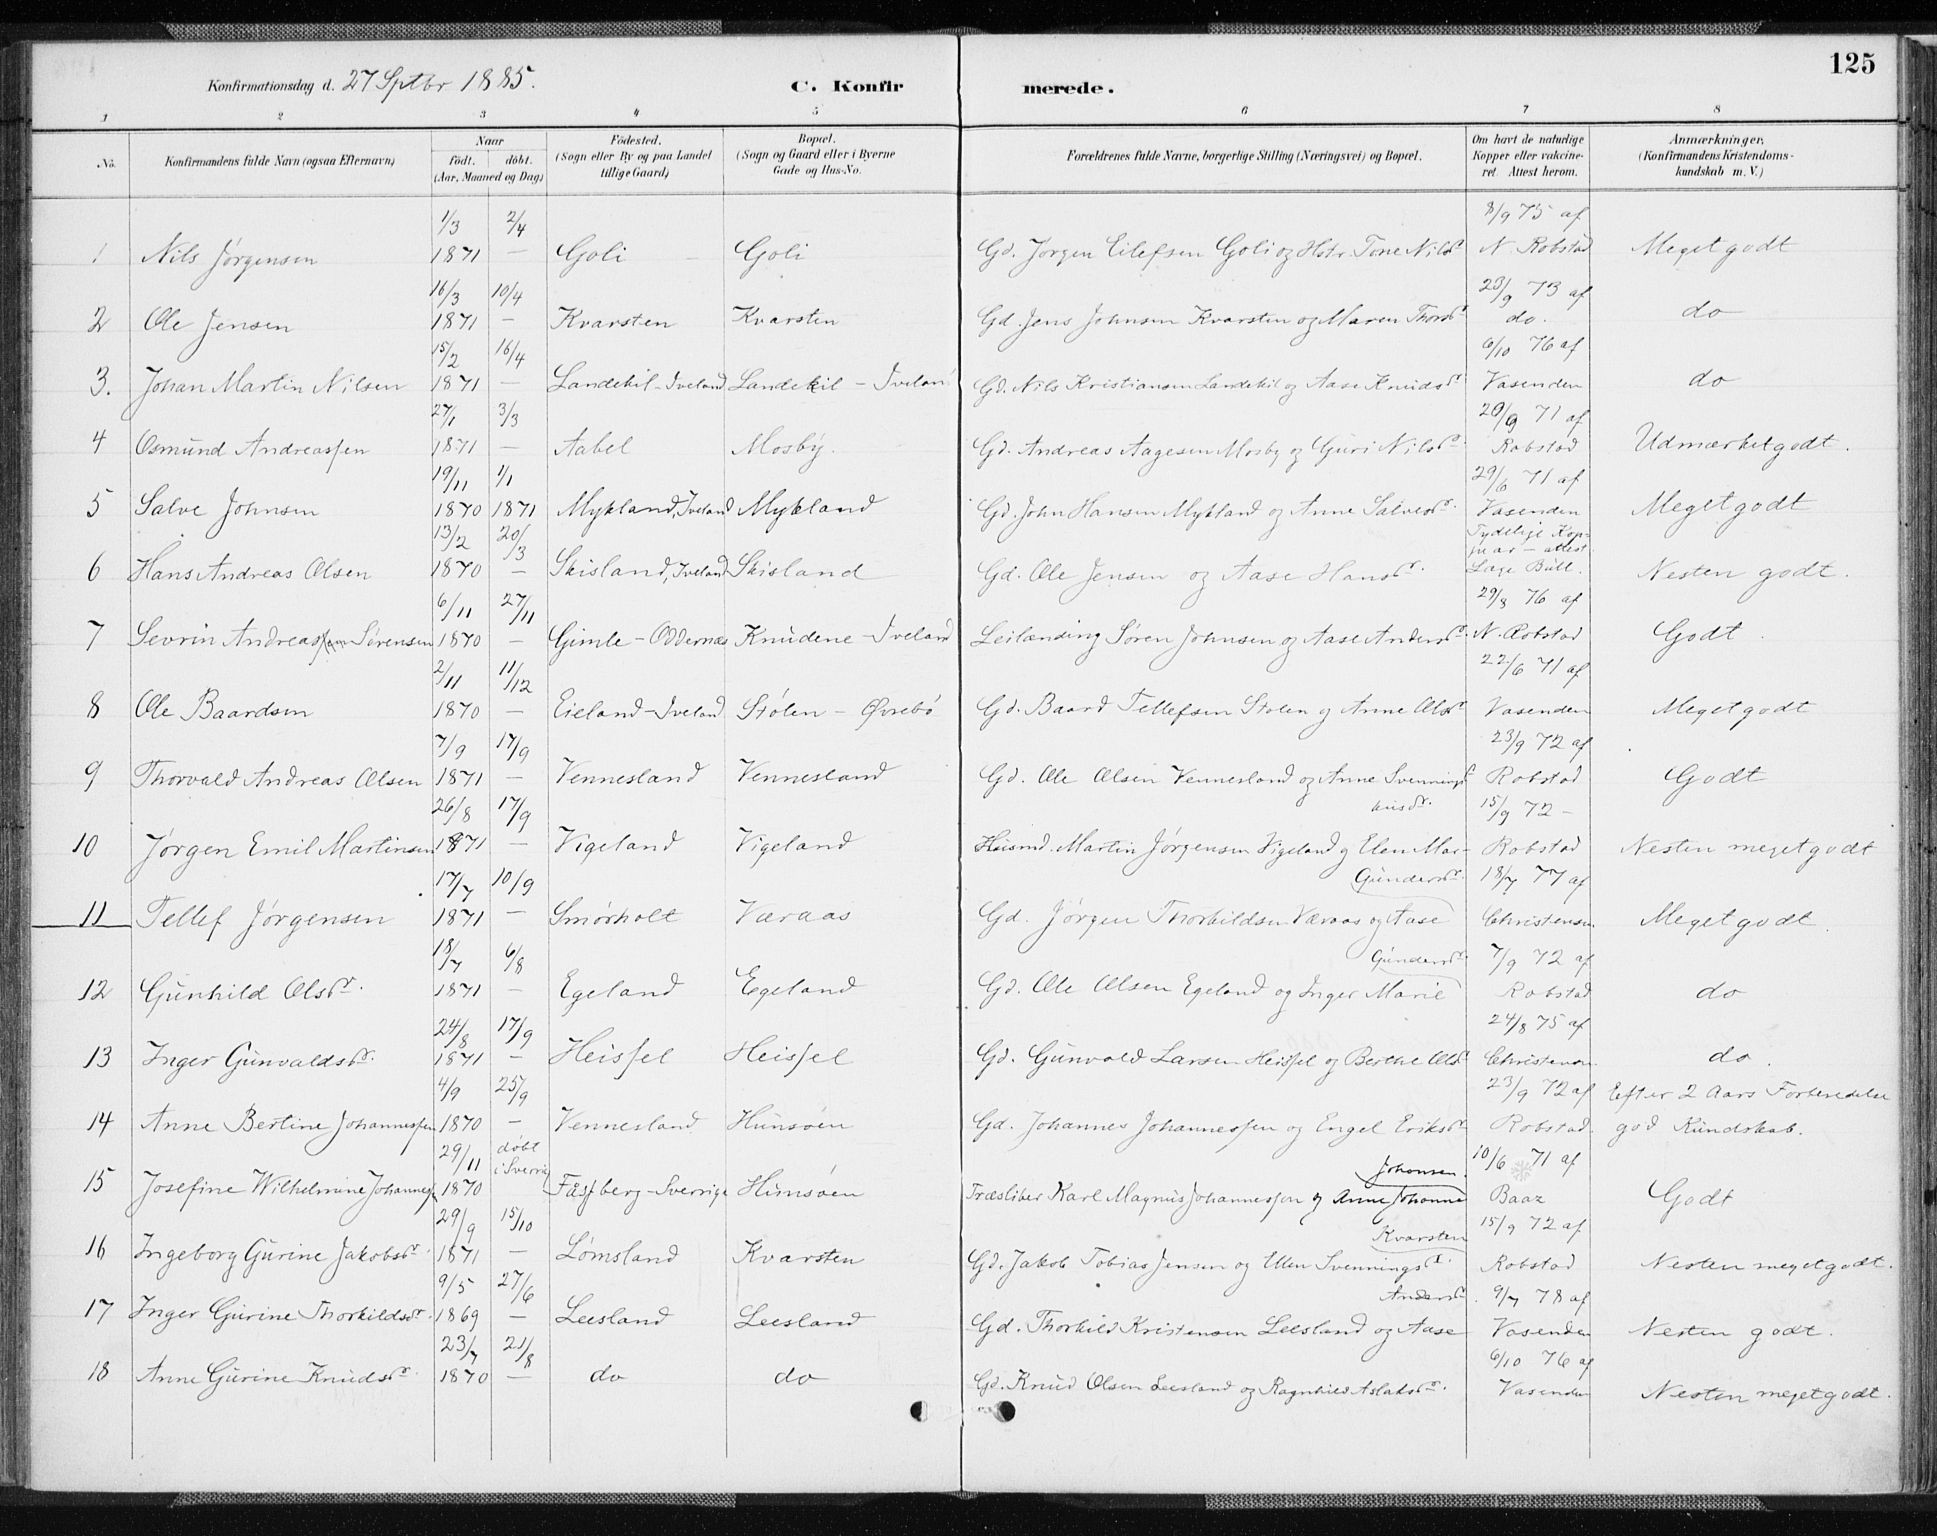 125
Konfirmationsdag d. 27 Septbr 1885. C. Konfirmerede.
1 2 3 4 5 6 7 8
No. Konfirmandens fulde Navn (ogsaa Efternavn) Naar født. døbt. (Aar, Maaned og Dag) Fødested. (Sogn eller By og paa Landet tillige Gaard) Bopæl. (Sogn og Gaard eller i Byerne Gade og Hus-No. Forældrenes fulde Navne, borgerlige Stilling (Næringsvei) og Bopæl. Om havt de naturlige Kopper eller vakcineret. Attest herom. Anmærkninger, (Konfirmandens Kristendomskundskab m. V.)
1/3 2/4 8/9 75 af
1 Nils Jørgensen 1871 — Goli Goli Gd. Jørgen Eilefsen Goli og Hstr. Tone Nilsdr N. Robstad Meget godt
16/3 10/4 23/9 73 af
2 Ole Jensen 1871 — Kvarsten Kvarsten Gd. Jens Johnsen Kvarsten og Maren Thorsdr do. do
15/2 16/4 6/10 76 af
3. Johan Martin Nilsen 1871 — Landekil-Iveland Landekil - Iveland Gd. Nils Kristiansen Landekil og Aase Knudsdr Vasenden do
27/1 3/3 20/9 71 af
4 Osmund Andreassen 1871 — Aabel Mosby. Gd. Andreas Aagesen Mosby og Guri Nilsdr. Robstad Udmærket godt.
19/11 1/1 29/6 71 af
5 Salve Johnsen 1870 1871 Mykland, Iveland Mykland Gd. John Hansen Mykland og Anne Salvesdr. Vasenden Meget godt
13/2 20/3 Tydelige Kop-
ar - attest
6 Hans Andreas Olsen 1870 — Skisland, Iveland Skisland Gd. Ole Jensen og Aase Hansdr. Læge Bull. Nesten godt.
6/11 27/11 29/8 76 af
7 Sevrin Andreas Sørensen 1870 — Gimle-Oddernes Knudene-Iveland Leilænding Søren Johnsen og Aase Andersdr. N. Robstad Godt.
2/11 11/12 22/6 71 af
8 Ole Baardsen 1870 — Eieland-Iveland Stølen - Øvrebø Gd. Baard Tellefsen Stolen og Anne Olsdr Vasenden Meget godt
7/9 17/9 23/9 72 af
9 Thorvald Andreas Olsen 1871 — Vennesland Vennesland Gd. Ole Olsen Vennesland og Anne Svenningsdr Robstad Godt
26/8 17/9 15/9 72 -
10 Jørgen Emil Martinsen 1871 — Vigeland Vigeland Husmd. Martin Jørgensen Vigeland og Elen Mar- Robstad Nesten meget godt
17/7 10/9 Gundersdr. 18/7 77 af
11 Tellef Jørgensen 1871 — Smørholt Væraas Gd. Jørgen Thorkildsen Væraas og Aase Christensen Meget godt.
18/7 6/8 Gundersdr. 7/9 72 af
12 Gunhild Olsdr. 1871 — Egeland Egeland Gd. Ole Olsen Egeland og Inger Marie Robstad do
24/8 17/9 24/8 75 af
13 Inger Gunvaldsdr. 1871 — Heissel Heissel Gd. Gunvald Larsen Heissel og Berthe Olsdr Christensen do.
4/9 25/9 23/9 72 af Efter 2 Aars Forberedelse
14 Anne Bertine Johannessen 1870 — Vennesland Hunsøen Gd. Johannes Johannessen og Engel Eriksdr Robstad. god Kundskab.
29/11 døbt i Sverrig Johansen. 10/6 71 af
15 Josefine Wilhelmine Johanness 1870 Fässberg-Sverrige Hunsøen Træsliber Karl Magnus Johannesson og Anne Johanne Baaz Godt
29/9 15/10 Kvarsten 15/9 72 af
16 Ingeborg Gurine Jakobsdr. 1871 — Lømsland Kvarsten Gd. Jakob Tobias Jensen og Ellen Svenningsdr. Robstad Nesten meget godt.
9/5 27/6 Andersdr. 9/7 78 af
17 Inger Gurine Thorkildsdr. 1869 — Leesland Leesland Gd. Thorkild Kristensen Leesland og Aase Vasenden Nesten godt.
23/7 21/8 6/10 76 af
18 Anne Gurine Knudsdr. 1870 — do do Gd. Knud Olsen Leesland og Ragnhild Aslaksdr. Vasenden Nesten meget godt.